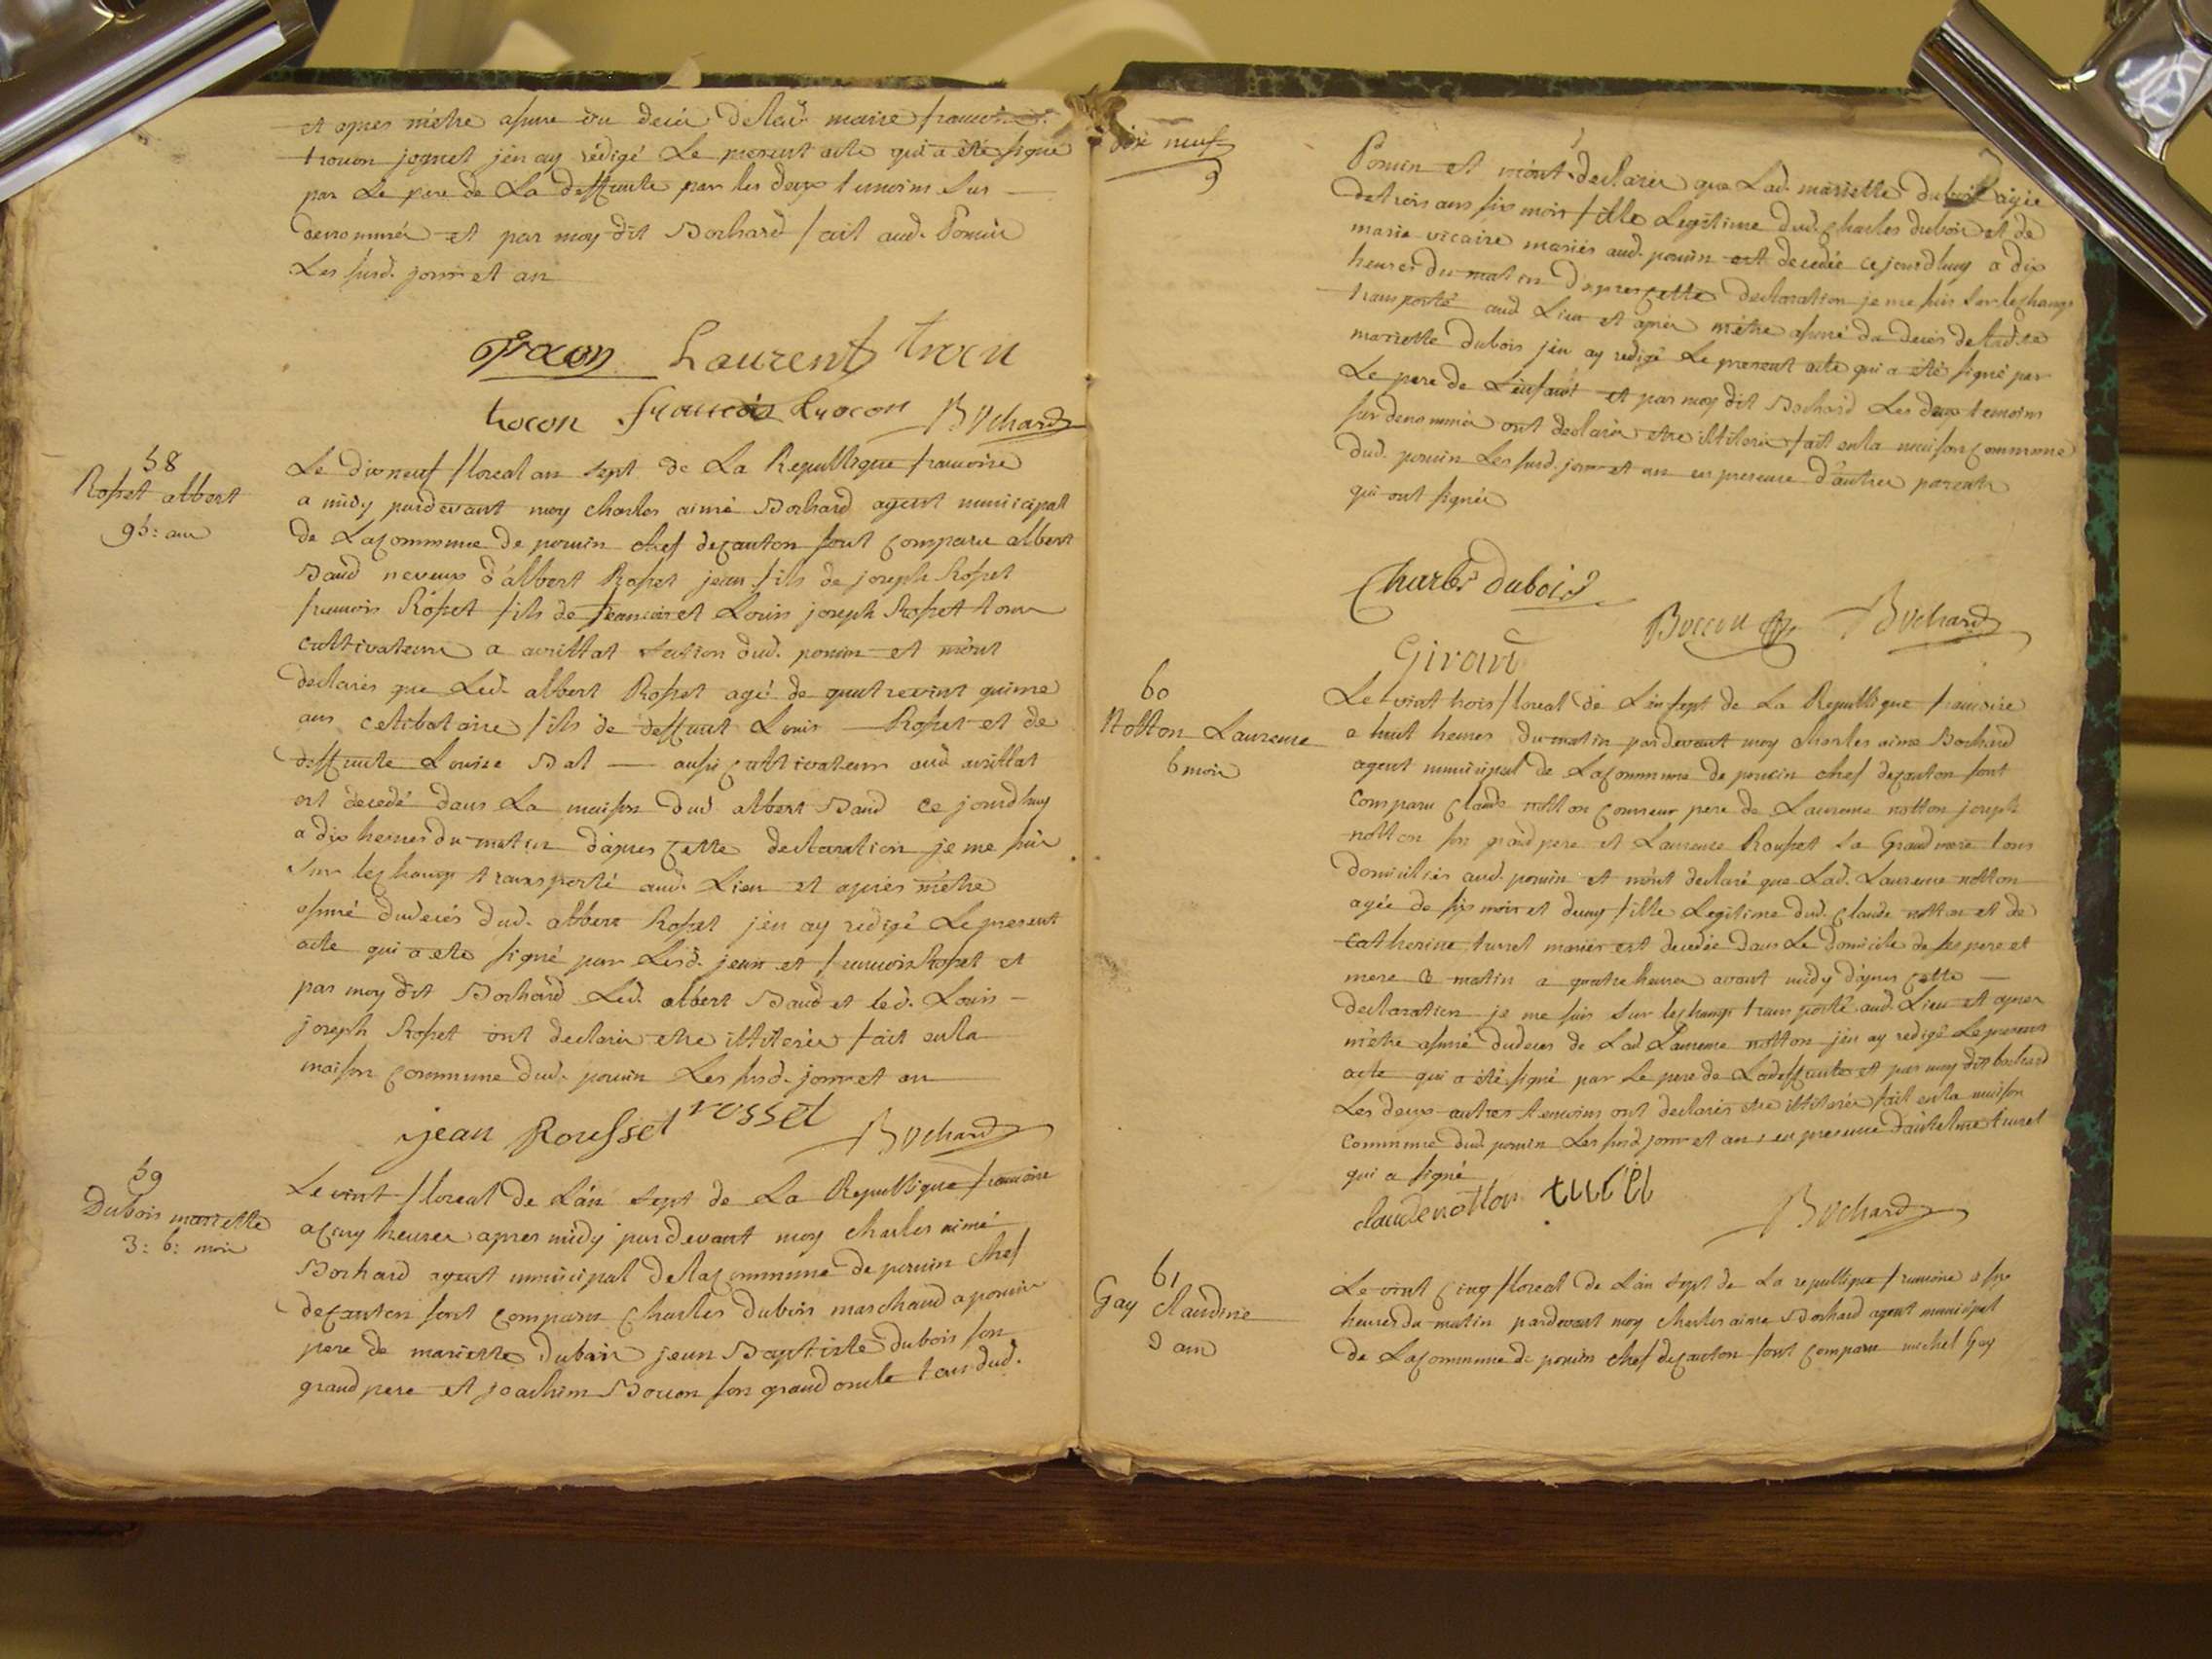 et apres m'etre assuré du decés de lad. marie francoise
trocon jognet j'en ay rédigé Le present acte qui a été signé
par Le pere de La deffunte par les deux temoins sus —
denommés et par moy dit Bochard fait aud. Poncin
Les susd. jour et an
Laurent trocon
trocon francois trocon Bochard
58
Rosset albert
95: ans
Le dix neuf floreal an sept de La Republique francoise
a midy pardevant moy charles aimé Bochard agent municipal
de La commune de poncin chef de canton sont comparu albert
Baud neveux d'albert Rosset jean fils de joseph Rosset
francois Rosset fils de francois et Louis joseph Rosset tous
cultivateurs a avrillat section dud. poncin et m'ont
declarés que Led. albert Rosset agé de quatrevint quinze
ans celibataire fils de deffunt Louis — Rosset et de
deffunte Louise Bal — aussi cultivateurs aud. avrillat
est decedé dans La maison dud. albert Baud ce jourdhuy
a dix heures du matin d'apres cette declaration je me suis
sur le champ transporté aud. Lieu et apres m'etre
assuré du decés dud. albert Rosset j'en ay redigé Le present
acte qui a eté signé par Lesd. jean et francois Rosset et
par moy dit Bochard Led. albert Baud et led. Louis —
joseph Rosset ont declarés etre illiterés fait en la
maison commune dud. poncin Les susd. jour et an
jean Rousset rosset Bochard
59
Dubois mariette
3: 6: mois
Le vint floreal de L'an sept de La Republique francoise
a cinq heures apres midy pardevant moy charles aimé
Bochard agent municipal de la commune de poncin chef
de canton sont comparu Charles dubois marchand a poncin
pere de mariette Dubois jean Baptiste dubois son
grand pere et joachim Bocon son grand oncle tous dud.
dix neuf
9
Poncin et m'ont declarés que Lad. mariette dubois agée
de trois ans six mois fille Legitime dud. Charles dubois et de
marie vicaire mariés aud. poncin est decedée ce jourdhuy a dix
heures du matin d'apres cette declaration je me suis sur le champ
transporté aud. Lieu et aprés m'etre assuré du decés de lad.
mariette dubois j'en ay redigé Le present acte qui a été signé par
Le pere de L'enfant et par moy dit Bochard Les deux temoins
sus denommés ont declarés etre illiterés fait en la maison commune
dud. poncin Les susd. jour et an en presence d'autres parents
qui ont signés
Charles dubois
Boccon Bochard
Girard
60
Notton Laurence
6 mois
Le vint trois floreal de L'an sept de La Republique francoise
a huit heures du matin pardevant moy charles aimé Bochard
agent municipal de La commune de poncin chef de canton sont
comparu claude notton pere de Laurence notton joseph
notton son grand pere et Laurence Rousset sa Grand mere tous
domiciliés aud. poncin et m'ont declaré que Lad. Laurence notton
agée de six mois et demy fille Legitime dud. Claude notton et de
catherine turrel mariés est decedée dans Le domicile de ses pere et
mere Ce matin a quatre heures avant midy d'apres cette —
declaration je me suis sur le champ transporté aud. Lieu et apres
m'etre assuré du decés de Lad. Laurence notton j'en ay redigé Le present
acte qui a été signé par Le pere de La deffunte et par moy dit bochard
Les deux autres temoins ont declarés etre illiterés fait en la maison
commune dud. poncin Les susd. jour et an en presence d'antelme turrel
qui a signé
claude notton turrel
Bochard
61
Gay claudine
2 ans
Le vint cinq floreal de L'an sept de La republique francoise a six
heures du matin pardevant moy charles aimé Bochard agent municipal
de La commune de poncin chef de canton sont comparu michel Gay